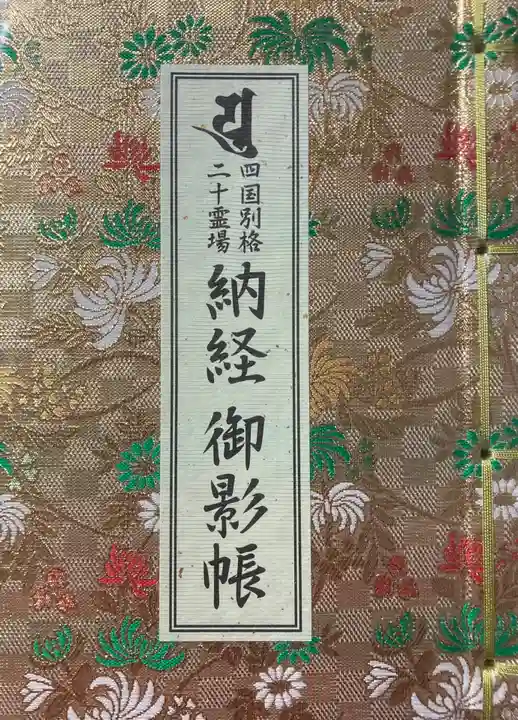 𑖧ु
四国別格
二十霊場
納経御影帳